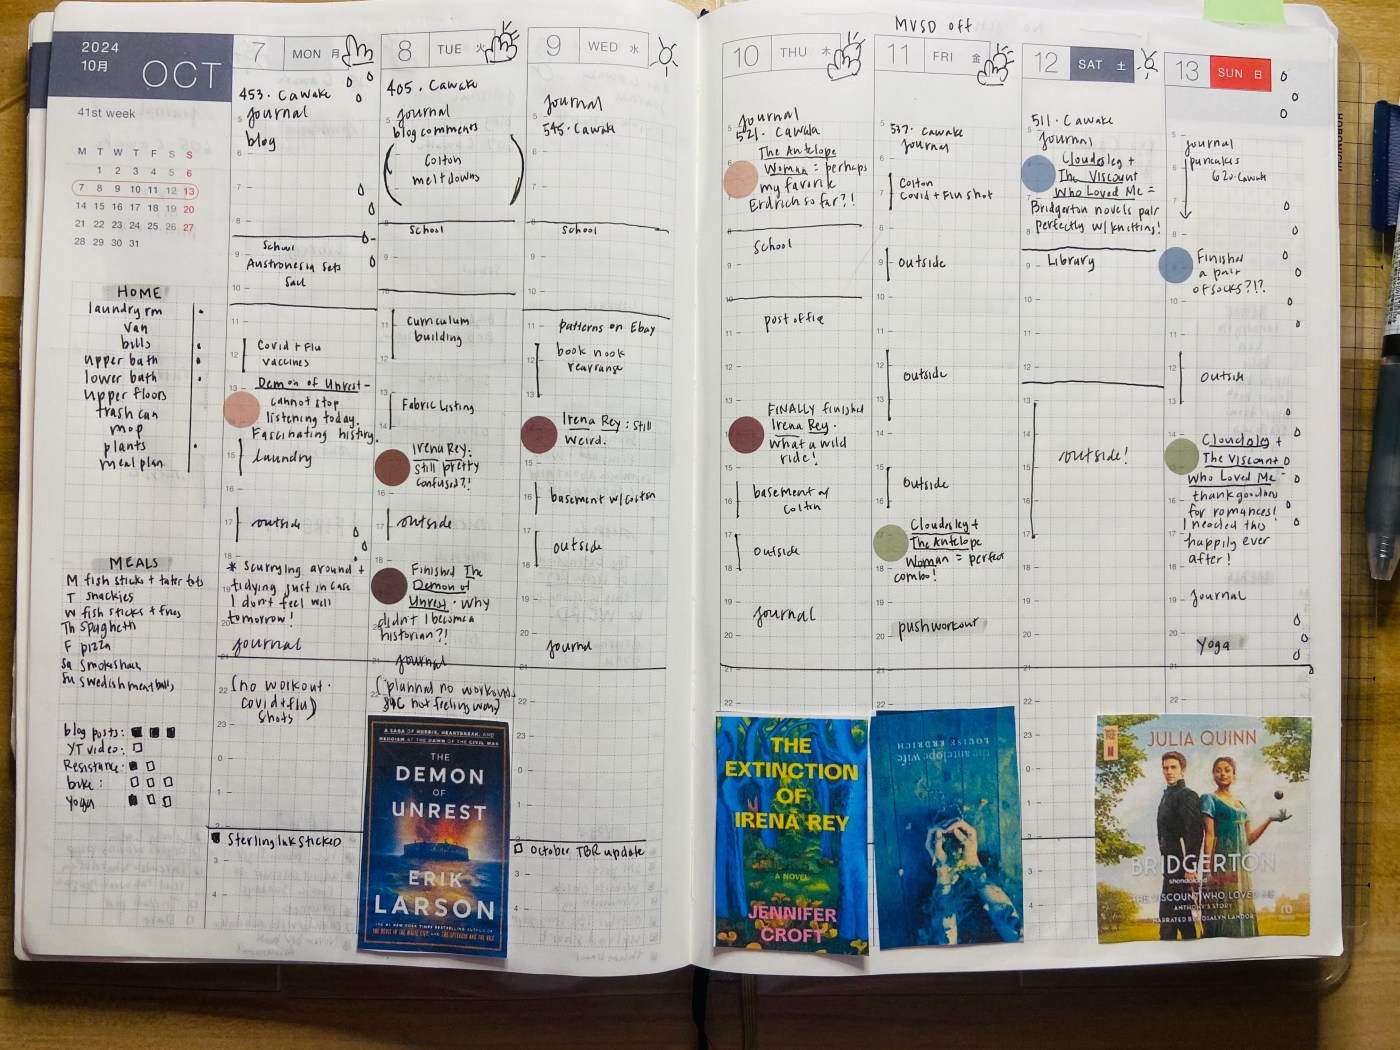 2024
10月
OCT
41st week
M T W T F S S
1 2 3 4 5 6
7 8 9 10 11 12 13
14 15 16 17 18 19 20
21 22 23 24 25 26 27
28 29 30 31
HOME
laundry rm
van
bills
upper bath
lower bath
upper floors
trash can
mop
plants
meal plan
MEALS
M fish sticks + tater tots
T snackies
W fish sticks + fries
Th spaghetti
F pizza
Sa Smokeshack
Su swedish meatballs
blog posts:
YT video:
Resistance:
bike:
Yoga
7 MON 月
453. Cawake
journal
blog
School
Austronesia Sets
Sail
Covid + Flu
vaccines
Demon of Unrest -
cannot stop
listening today.
Fascinating history.
laundry
outside
* scurrying around +
tidying just in case
I don't feel well
tomorrow!
journal
(no workout.
covid + flu)
shots
Sterling Ink Sticked
8 TUE 火
405. Cawake
journal
blog comments
(Colton
meltdowns)
School
curriculum
building
Fabric Listing
Irena Rey:
still pretty
confused?!
outside
Finished The
Demon of
Unrest. Why
didn't I become a
historian?!
journal
(planned no workout
not feeling well)
A SAGA OF HUBRIS, HEARTBREAK, AND
HEROISM AT THE DAWN OF THE CIVIL WAR
THE
DEMON
OF
UNREST
ERIK
LARSON
#1 NEW YORK TIMES BESTSELLING AUTHOR OF
THE DEVIL IN THE WHITE CITY AND THE SPLENDID AND THE VILE
9 WED 水
journal
545. Cawake
School
patterns on Ebay
book nook
rearrange
Irena Rey: still
weird.
basement w/ Colton
outside
journal
October TBR update
10 THU 木
journal
521. Cawala
The Antelope
Woman = perhaps
my favorite
Erdrich so far?!
school
post office
FINALLY finished
Irena Rey.
what a wild
ride!
basement w/
Colton
outside
journal
THE
EXTINCTION
OF
IRENA REY
A NOVEL
JENNIFER
CROFT
MVSD off
11 FRI 金
537. cawake
journal
Colton
Covid + Flu shot
outside
outside
outside
Cloudesley +
The Antelope
Woman = perfect
combo!
push workout
the antelope wife
LOUISE ERDRICH
12 SAT 土
511. Cawake
journal
Cloudesley +
The Viscount
Who Loved Me =
Bridgerton novels pair
perfectly w/ knitting!
Library
outside!
13 SUN 日
journal
pancakes
620. Cawake
Finished
a pair
of socks?!?
outside
Cloudesley +
The Viscount
Who Loved Me =
thank goodness
for romances!
I needed this
happily ever
after!
journal
Yoga
N
JULIA QUINN
BRIDGERTON
THE VISCOUNT WHO LOVED ME
ANTHONY'S STORY
NARRATED BY ROSALYN LANDOR